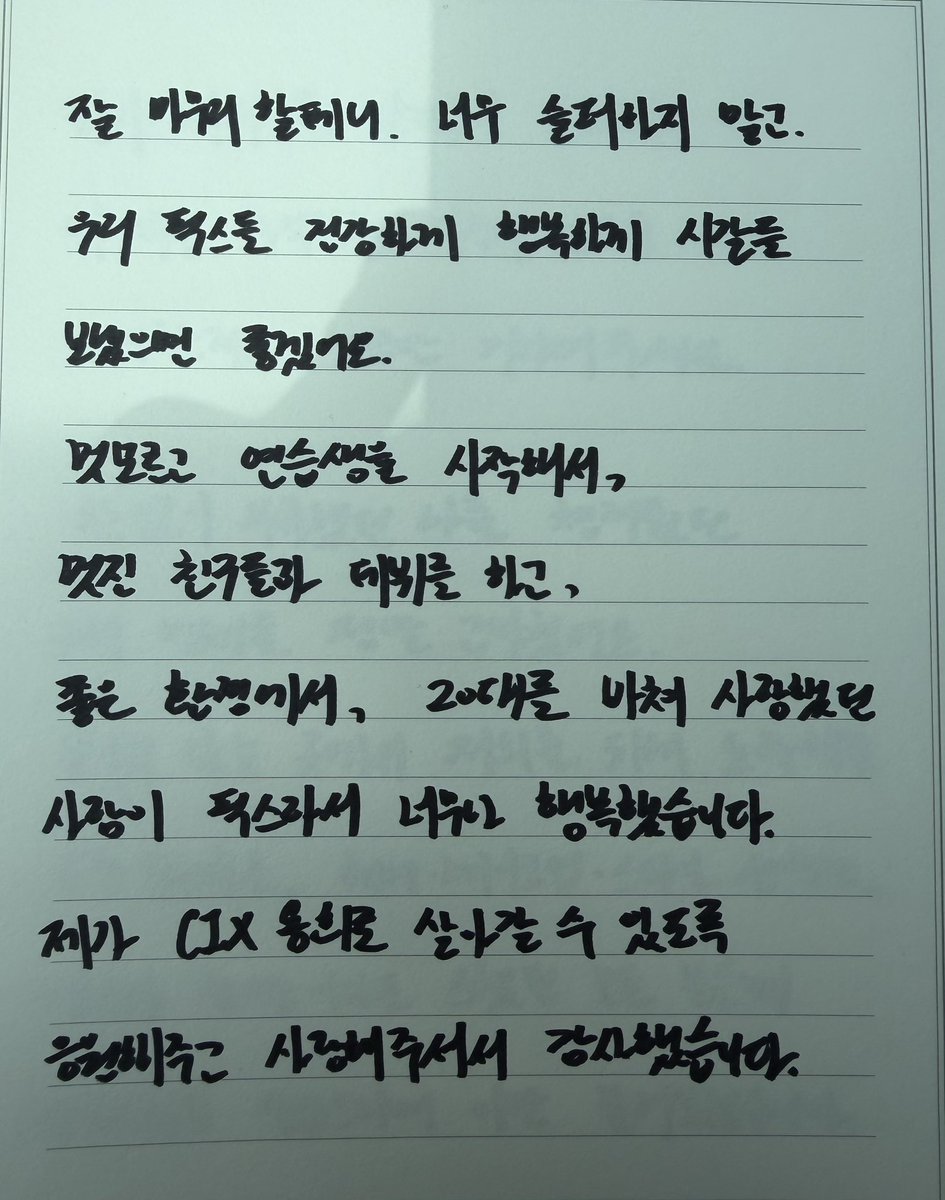 잘 마무리 할테니. 너무 슬퍼하지 말고.
우리 픽스들 건강하게 행복하게 시간들
보냈으면 좋겠어요.
멋모르고 연습생을 시작해서,
멋진 친구들과 데뷔를 하고,
좋은 환경에서, 20대를 바쳐 사랑했던
사람이 픽스라서 너무나 행복했습니다.
제가 CIX 용희로 살아갈 수 있도록
응원해주고 사랑해주셔서 감사했습니다.